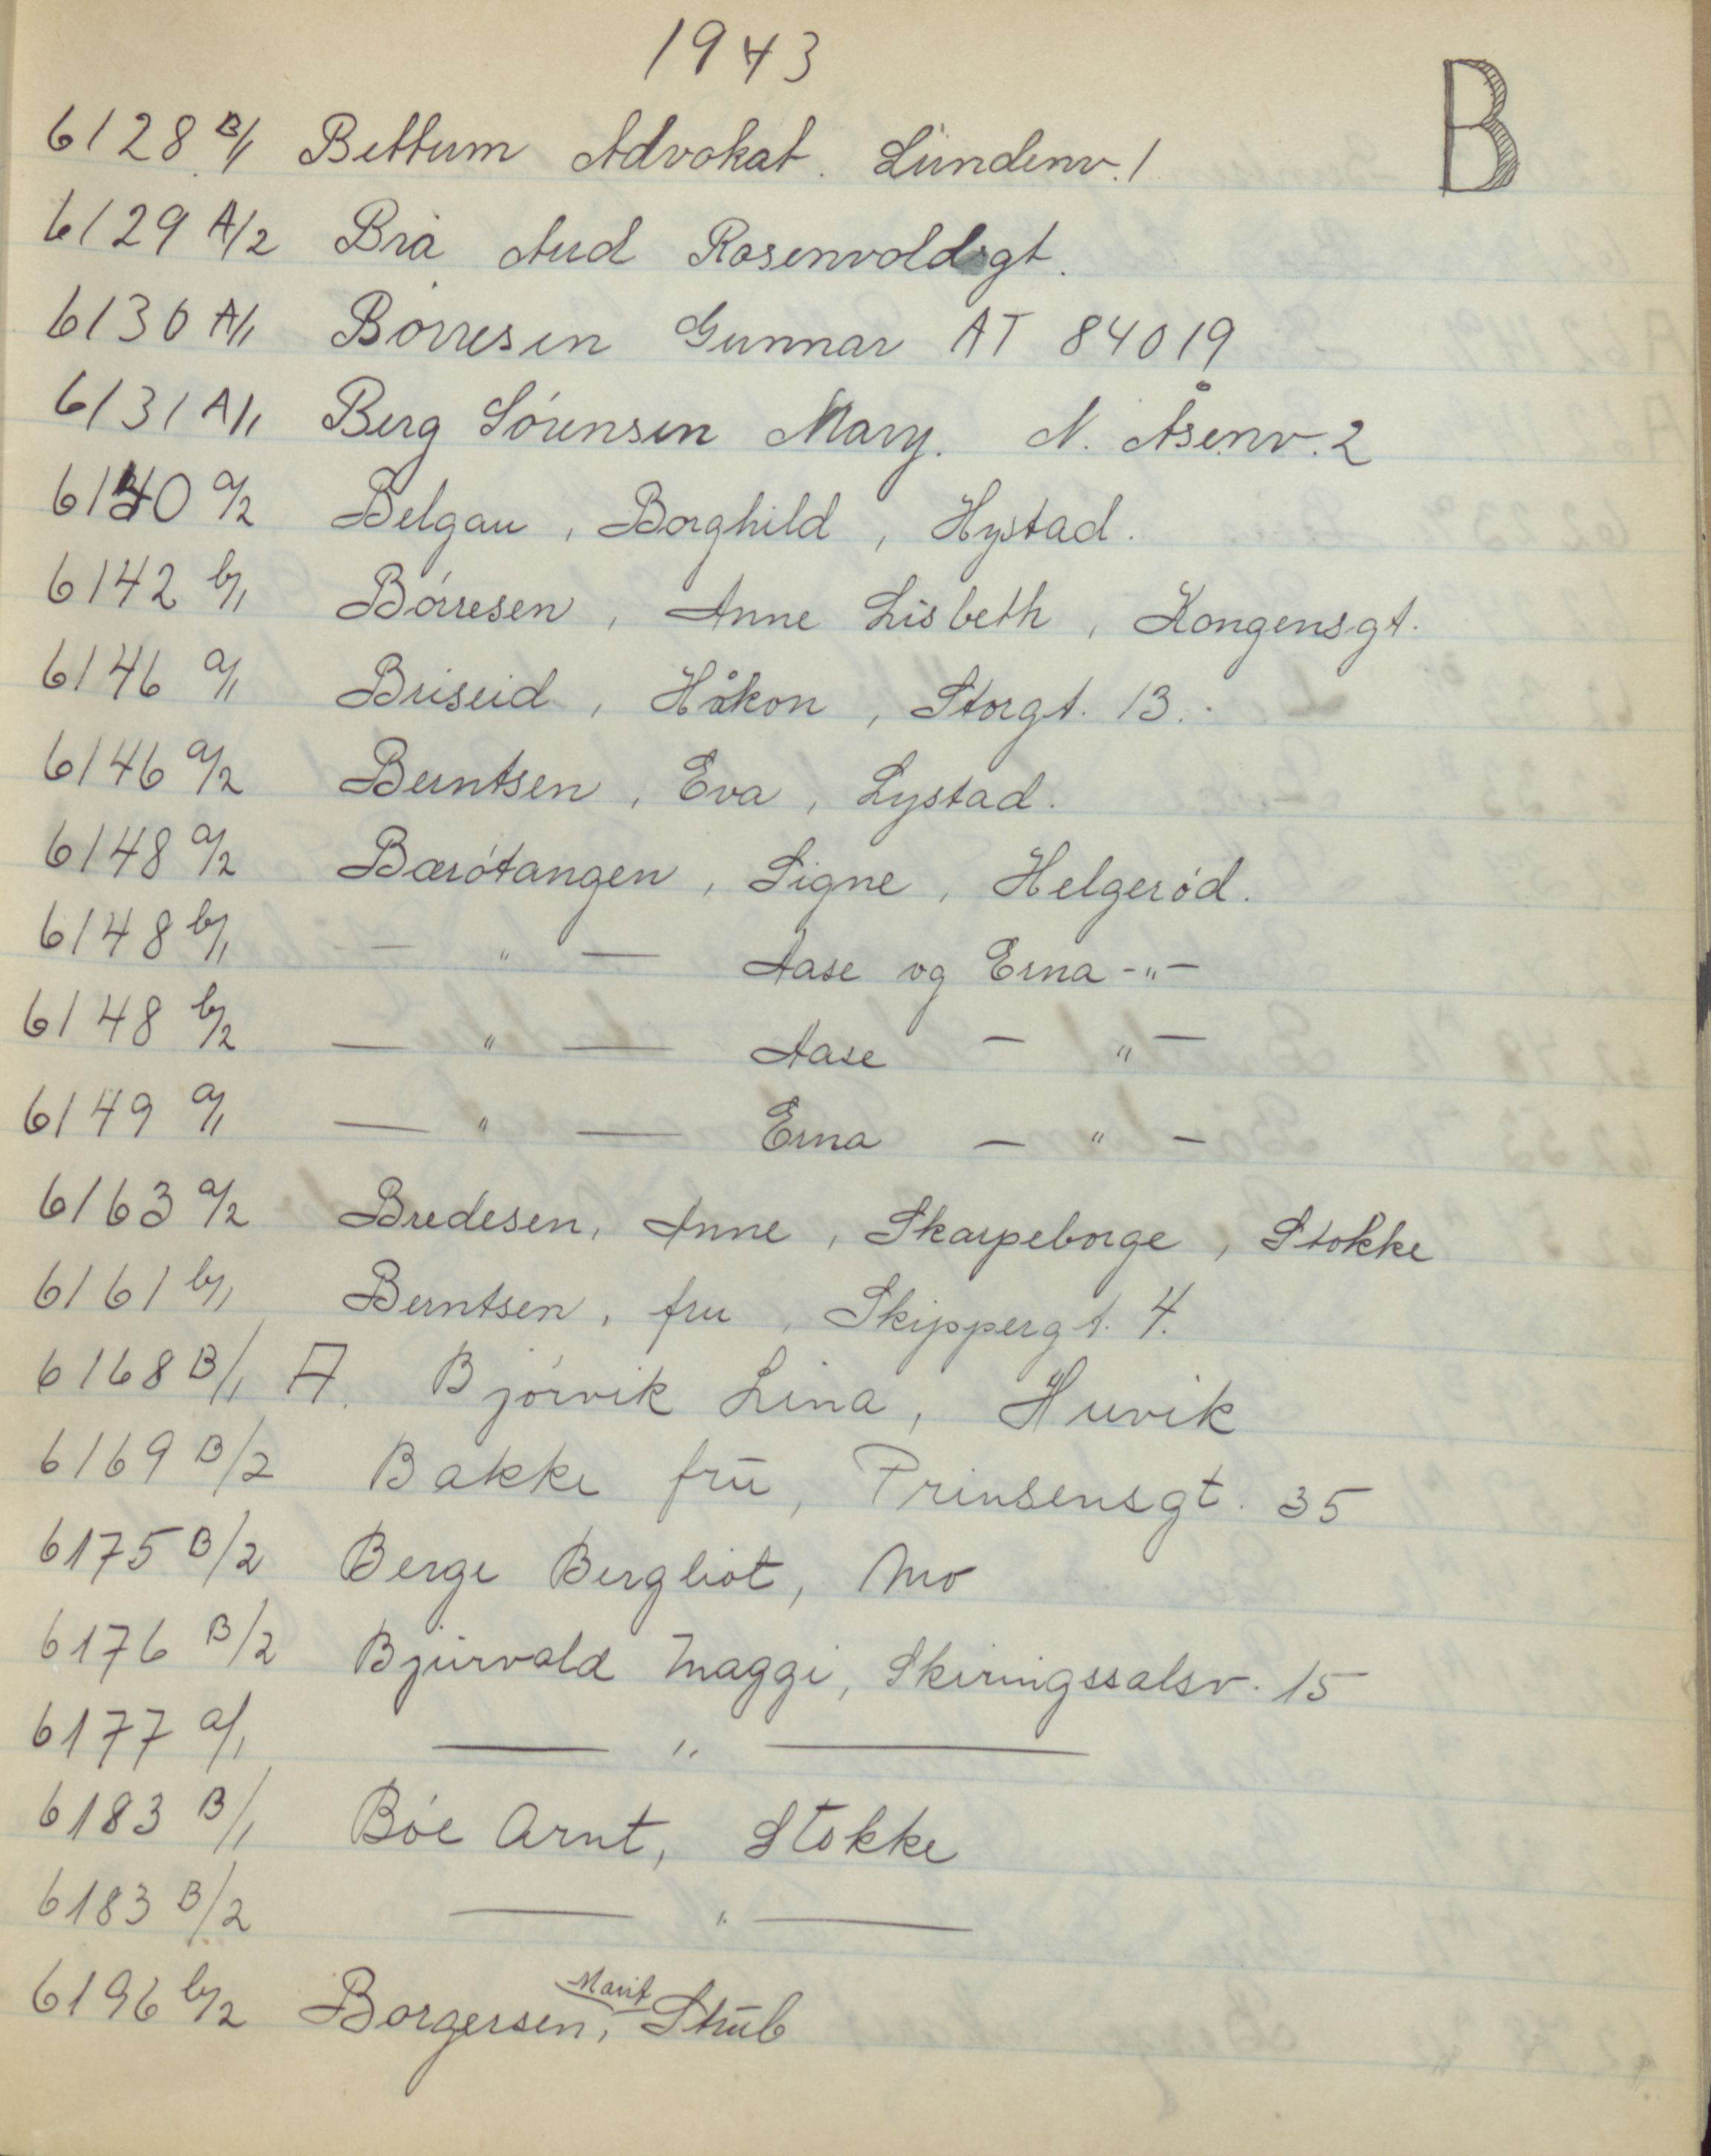 1943
B
6128 B/1 Bettum Advokat. Lundenv. 1
6129 A/2 Brå Aud Rosenvoldsgt.
6130 A/1 Børresen Gunnar AT 84019
6131 A/1 Berg Sørensen Mary. N. Åsenv. 2
6140 a/2 Belgau, Borghild, Hystad.
6142 b/1 Børresen, Anne Lisbeth, Kongensgt.
6146 a/1 Briseid, Håkon, Storgt. 13.
6146 a/2 Berntsen, Eva, Lystad.
6148 a/2 Bærøtangen, Signe, Helgerød.
6148 b/1 — " — Aase og Erna - " -
6148 b/2 — " — Aase — " —
6149 a/1 — " — Erna — " —
6163 a/2 Bredesen, Anne, Skarpeborge, Stokke
6161 b/1 Berntsen, fru, Skippergt. 4.
6168 B/1 A. Bjørvik Lina, Huvik
6169 B/2 Bakke frū, Prinsensgt. 35
6175 B/2 Berge Bergliot, Mo
6176 B/2 Bjurvald Maggi, Skiringssalsv. 15
6177 a/1 — " —
6183 B/1 Bøe Arnt, Stokke
6183 B/2 — " —
6196 b/2 Borgersen, Marit Stūb